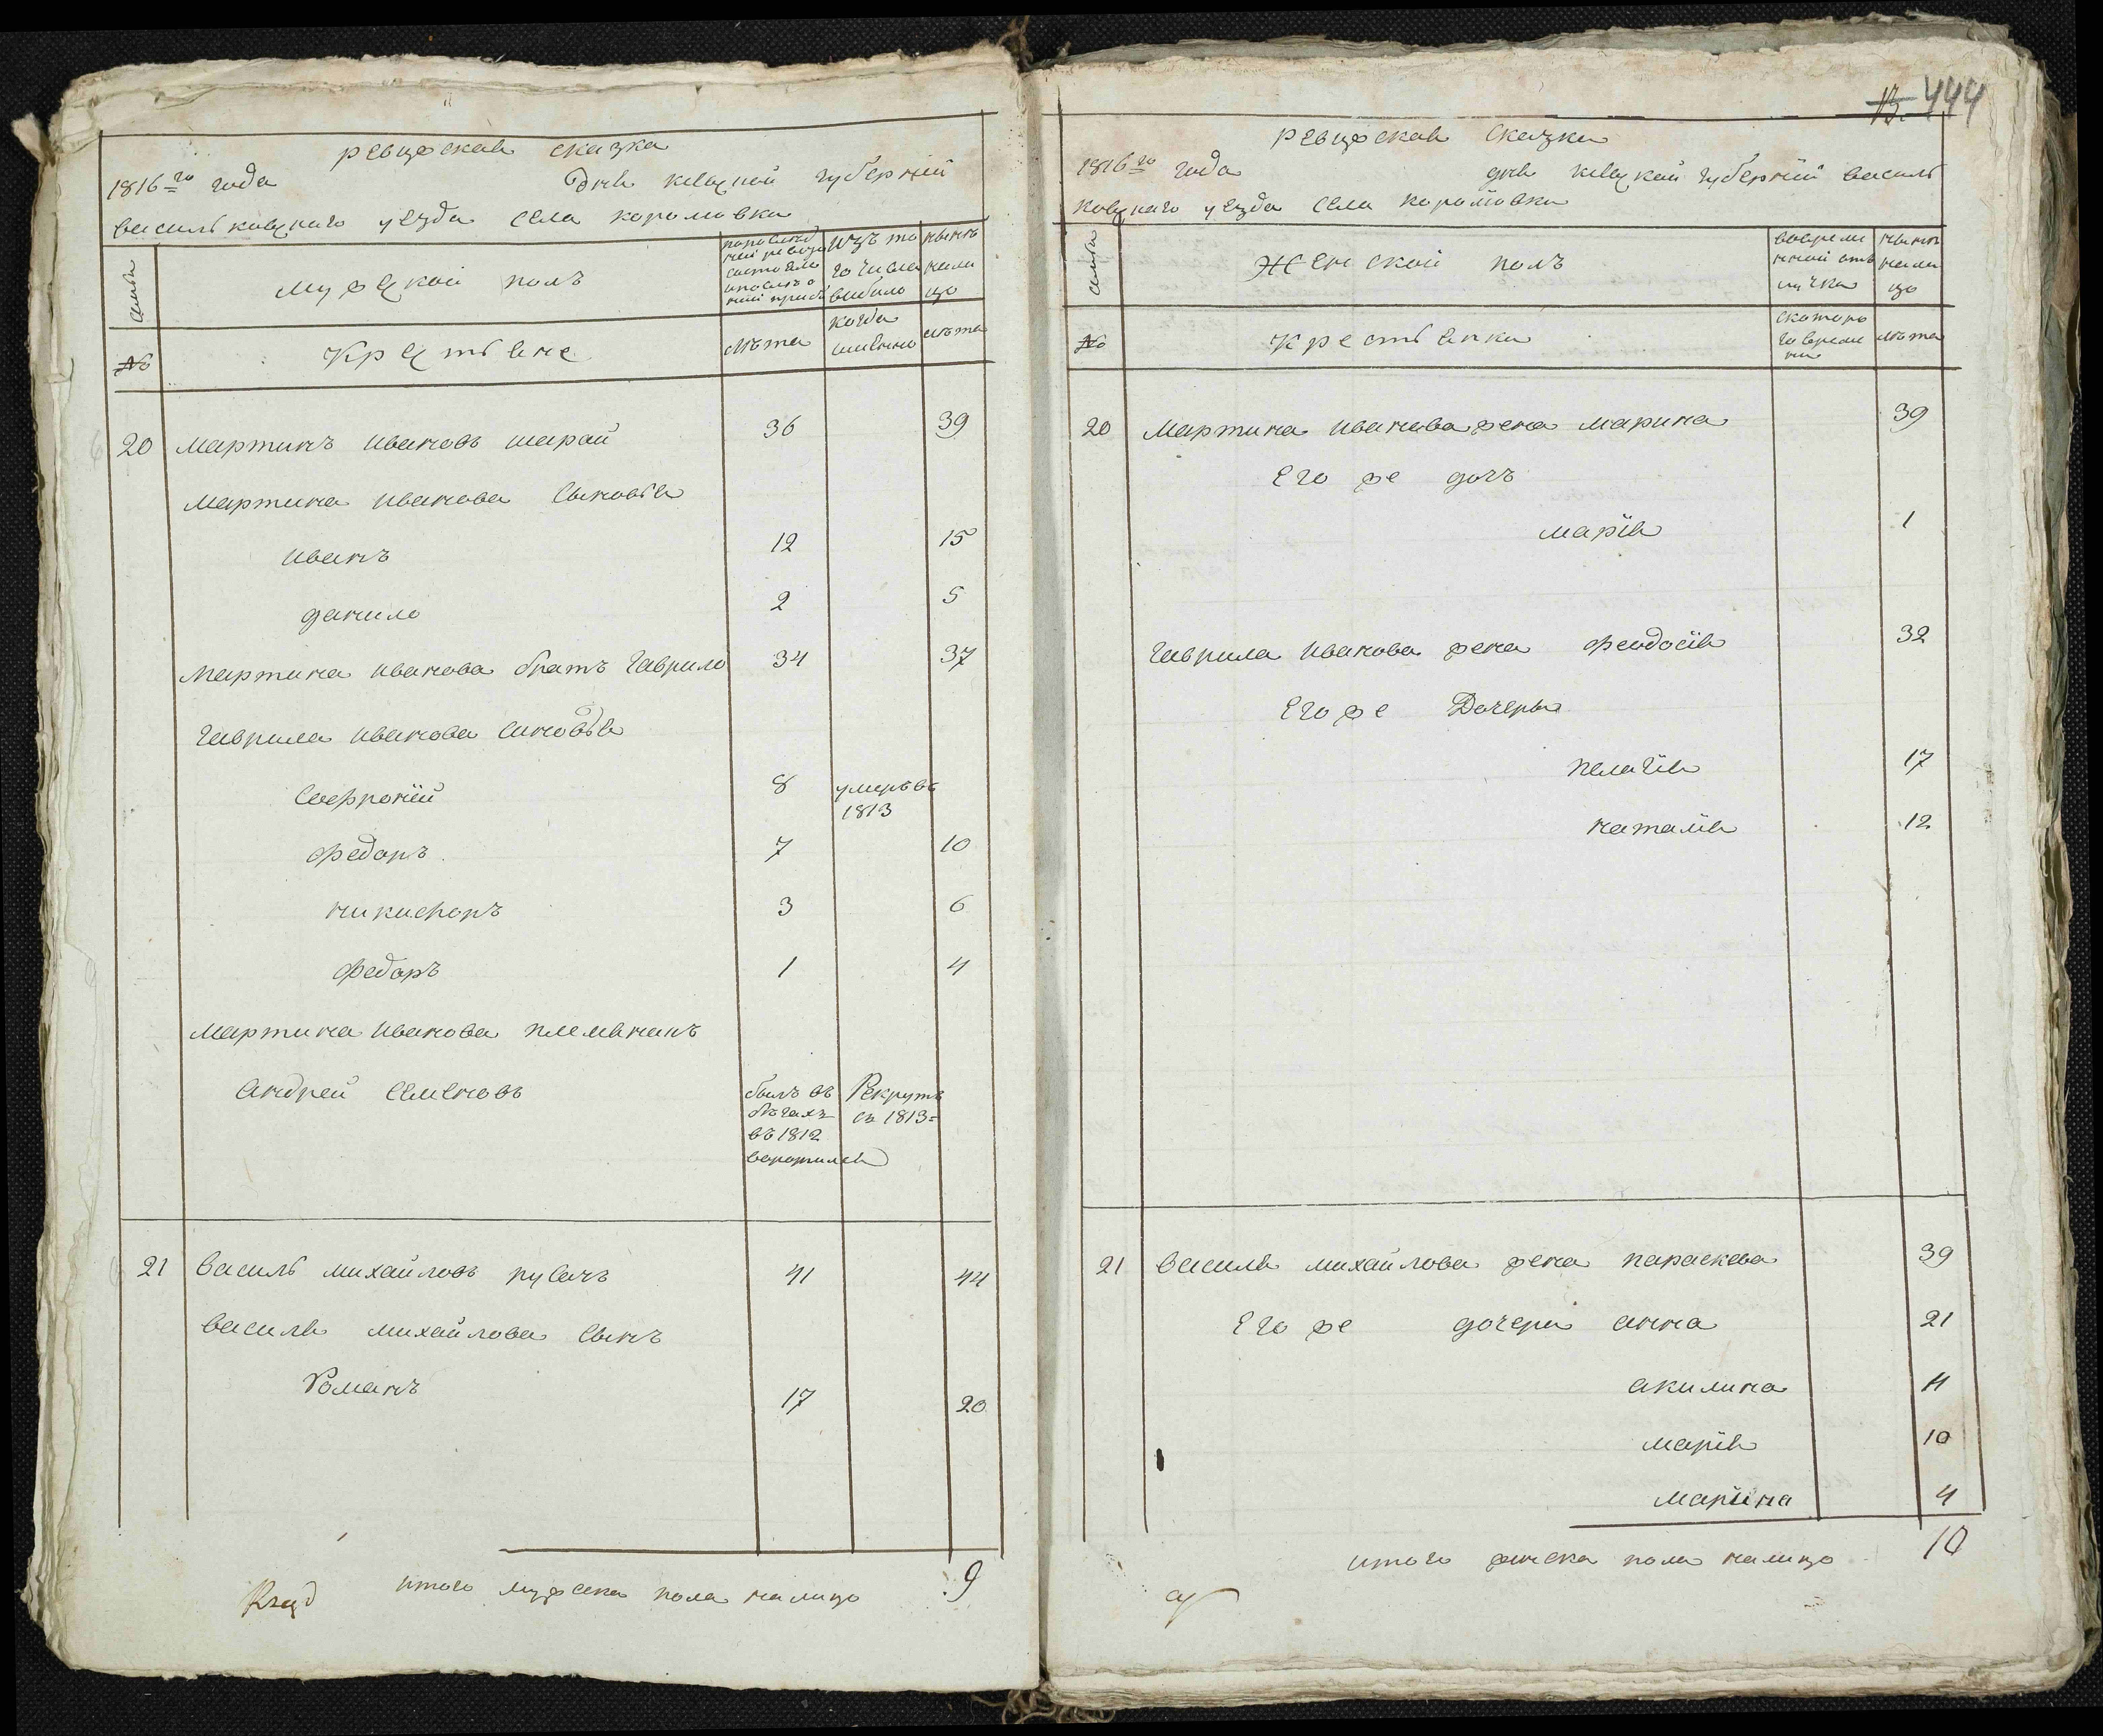 ревижская сказка
1816го года Дня киевской губернии
василковскаго уезда села королювка
семьи
мужеской полъ
по последней ревизии состояло и после оной прибыло
изъ того числа выбыло
ныне на лицо
№
Крестьяне
лѣта
когда именно
лѣта
20 мартинъ ивановъ шарай 36 39
мартина иванова сыновья
иванъ 12 15
данило 2 5
мартина иванова братъ гаврило 34 37
гаврила иванова синовья
софроній 8 умеръ въ 1813
федоръ 7 10
никифоръ 3 6
федоръ 1 4
мартина иванова племяникъ
андрей семеновъ былъ въ бѣгахъ въ 1812 воротился Рекрутъ въ 1813
21 василь михайловъ кусачъ 41 44
василя михайлова сынъ
Романъ 17 20
итого мужеска пола на лицо 9
13. 444
ревижская сказка
1816го года дня киевской губерніи василь
ковскаго уезда села королювки
семьи
женской полъ
во временной отлучке
ныне на лицо
№
крестьянки
с котораго времени
лѣта
20 мартина иванова жена марина 39
Его же дочь
марія 1
гаврила иванова жена феодосія 32
Его же Дочеры
пелагія 17
наталія 12
21 василя михайлова жена параскева 39
Его же дочери анна 21
акилина 11
марія 10
марина 4
итого женска пола на лицо 10